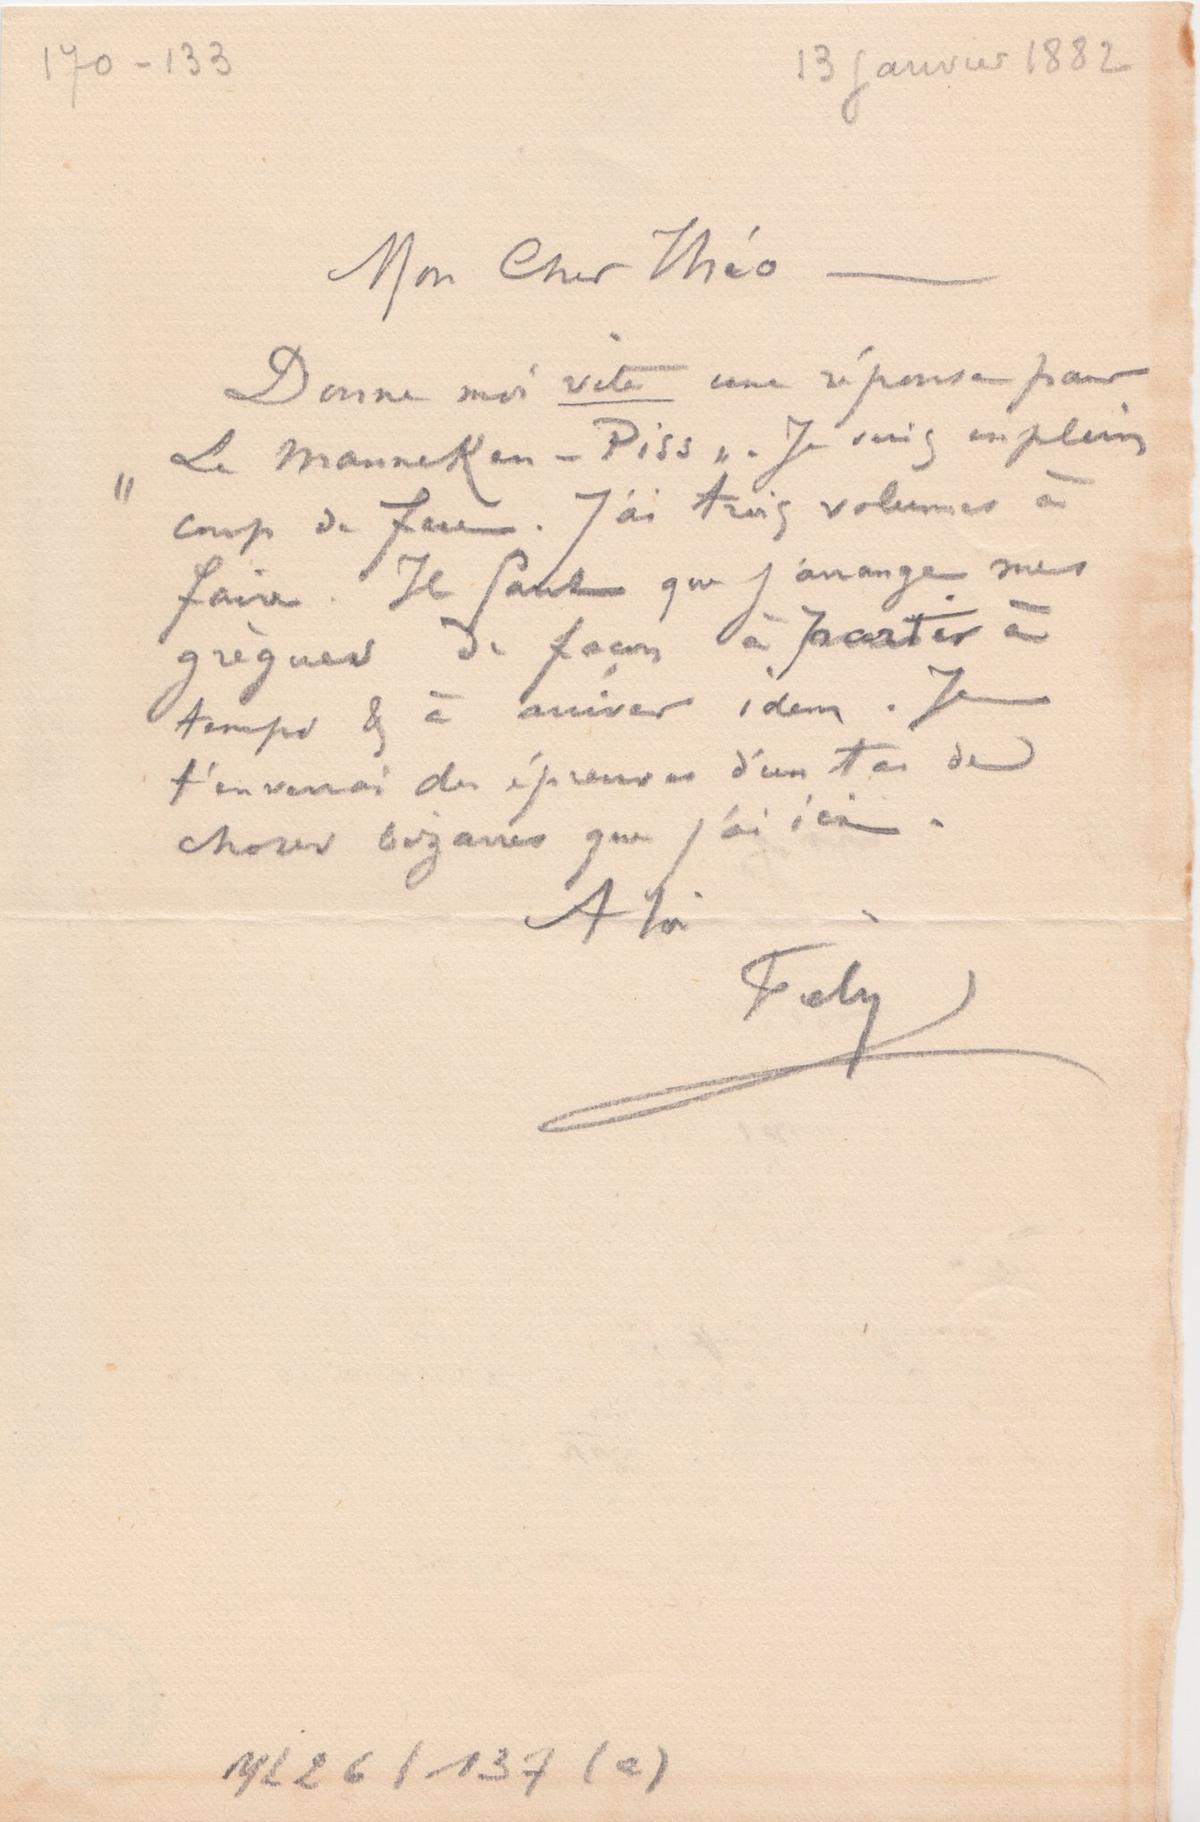 170 - 133
13 janvier 1882
Mon Cher Théo —
Donne moi vite une réponse pour
" Le Manneken - Piss ". Je suis en plein
coup de feu. J'ai trois volumes à
faire. Il faut que j'arrange mes
grègues de façon à partir à
temps & à arriver idem. Je
t'enverrai des épreuves d'un tas de
choses bizarres que j'ai ici.
A toi
Fély
ML 26 / 137 (a)